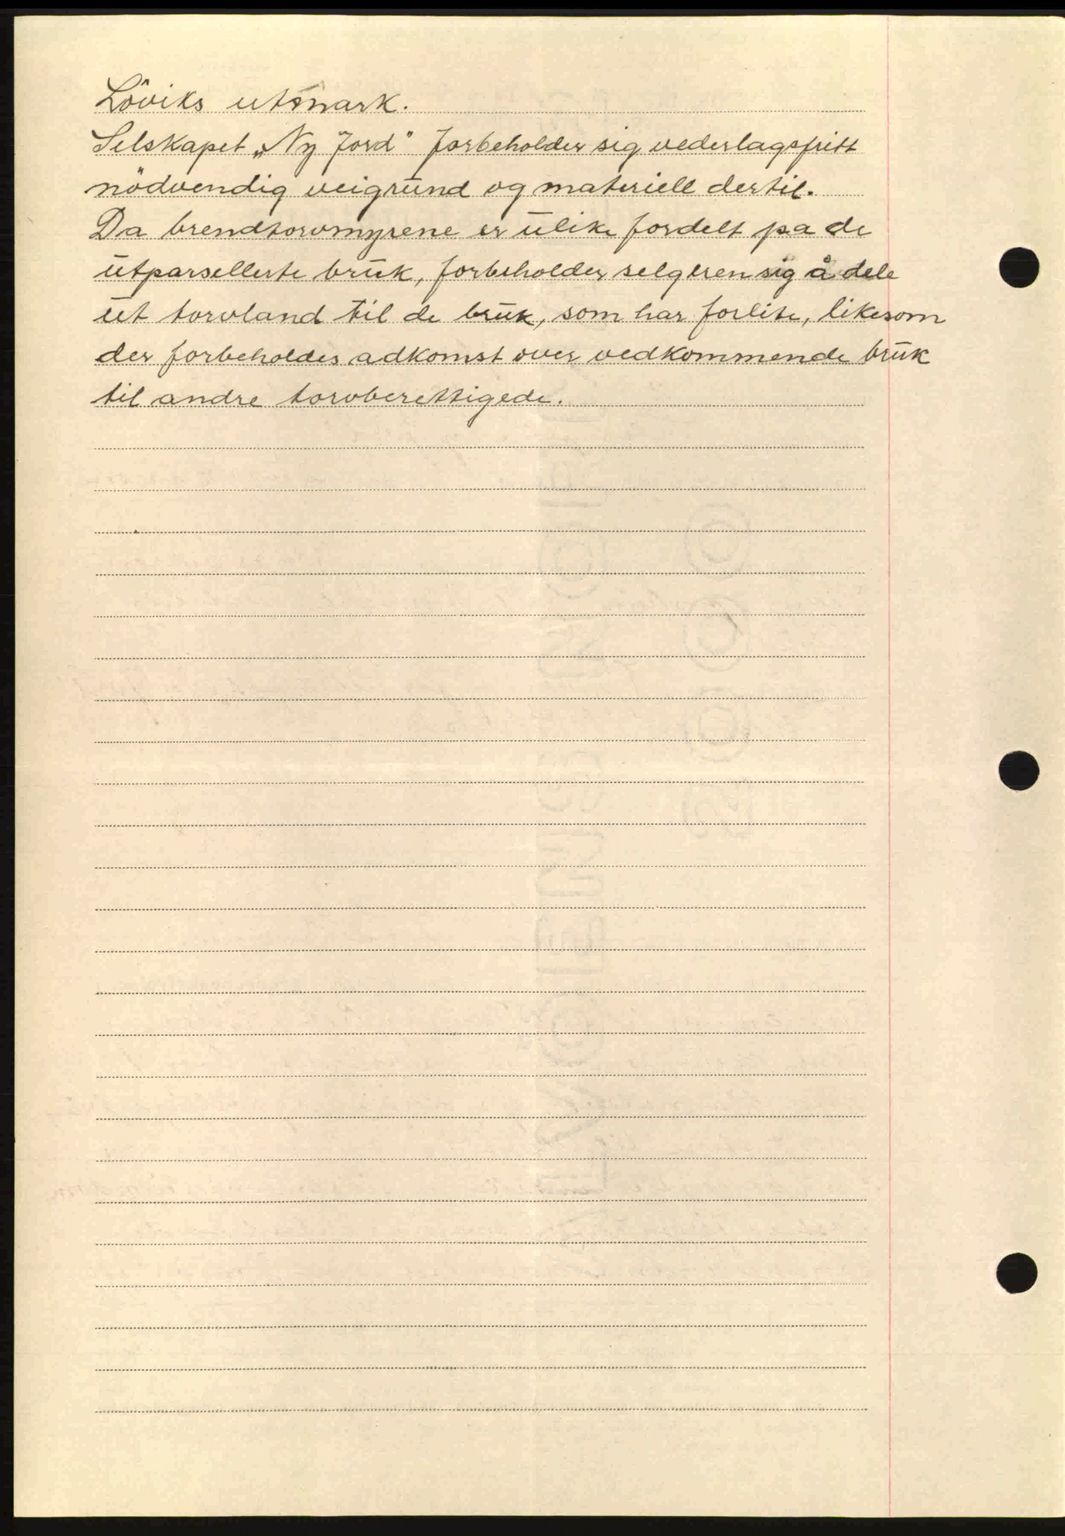 Löviks utmark.
Selskapet „Ny Jord" forbeholder sig vederlagsfritt
nödvendig veigrunn og materiell dertil.
Da brendtorvmyrene er ulike fordelt på de
utparsellerte bruk, forbeholder selgeren sig å dele
ut torvland til de bruk, som har forlite, likesom
der forbeholdes adkomst over vedkommende bruk
til andre torvberettigede.